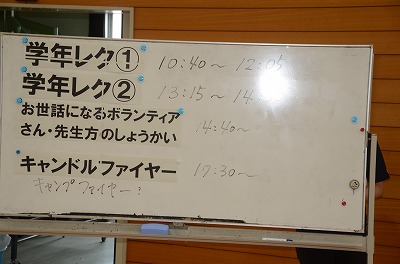 学年レク① 10:40〜 12:05
学年レク② 13:15〜 14:
お世話になるボランティア
さん・先生方のしょうかい 14:40〜
キャンドルファイヤー 17:30〜
キャンプファイヤー!